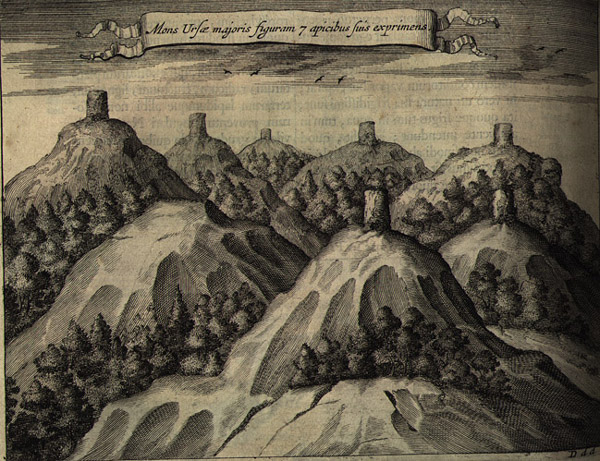 Mons Ursæ majoris figuram 7 apicibus ſuis exprimens.
D d d